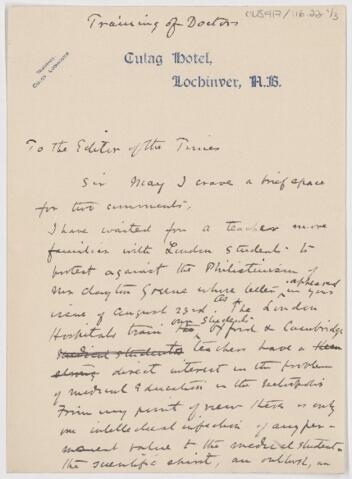 CUS417/116.22 1/3
Training of Doctors
Culag Hotel,
Lochinver, N.B.
To the Editor of the Times
Sir May I crave a brief space
for two comments,
I have waited for a teacher more
familiar with London students to
protest against the Philistinism of
Mr Clayton Greene whose letter appeared in your
issue of August 23rd. As the London
Hospitals train our students Oxford & Cambridge
medical students teachers have a keen
strong direct interest in the problem
of medical Education in the Metropolis
From my point of view there is only
one intellectual infection of any per-
manent value to the medical student -
the scientific spirit, an outlook, an